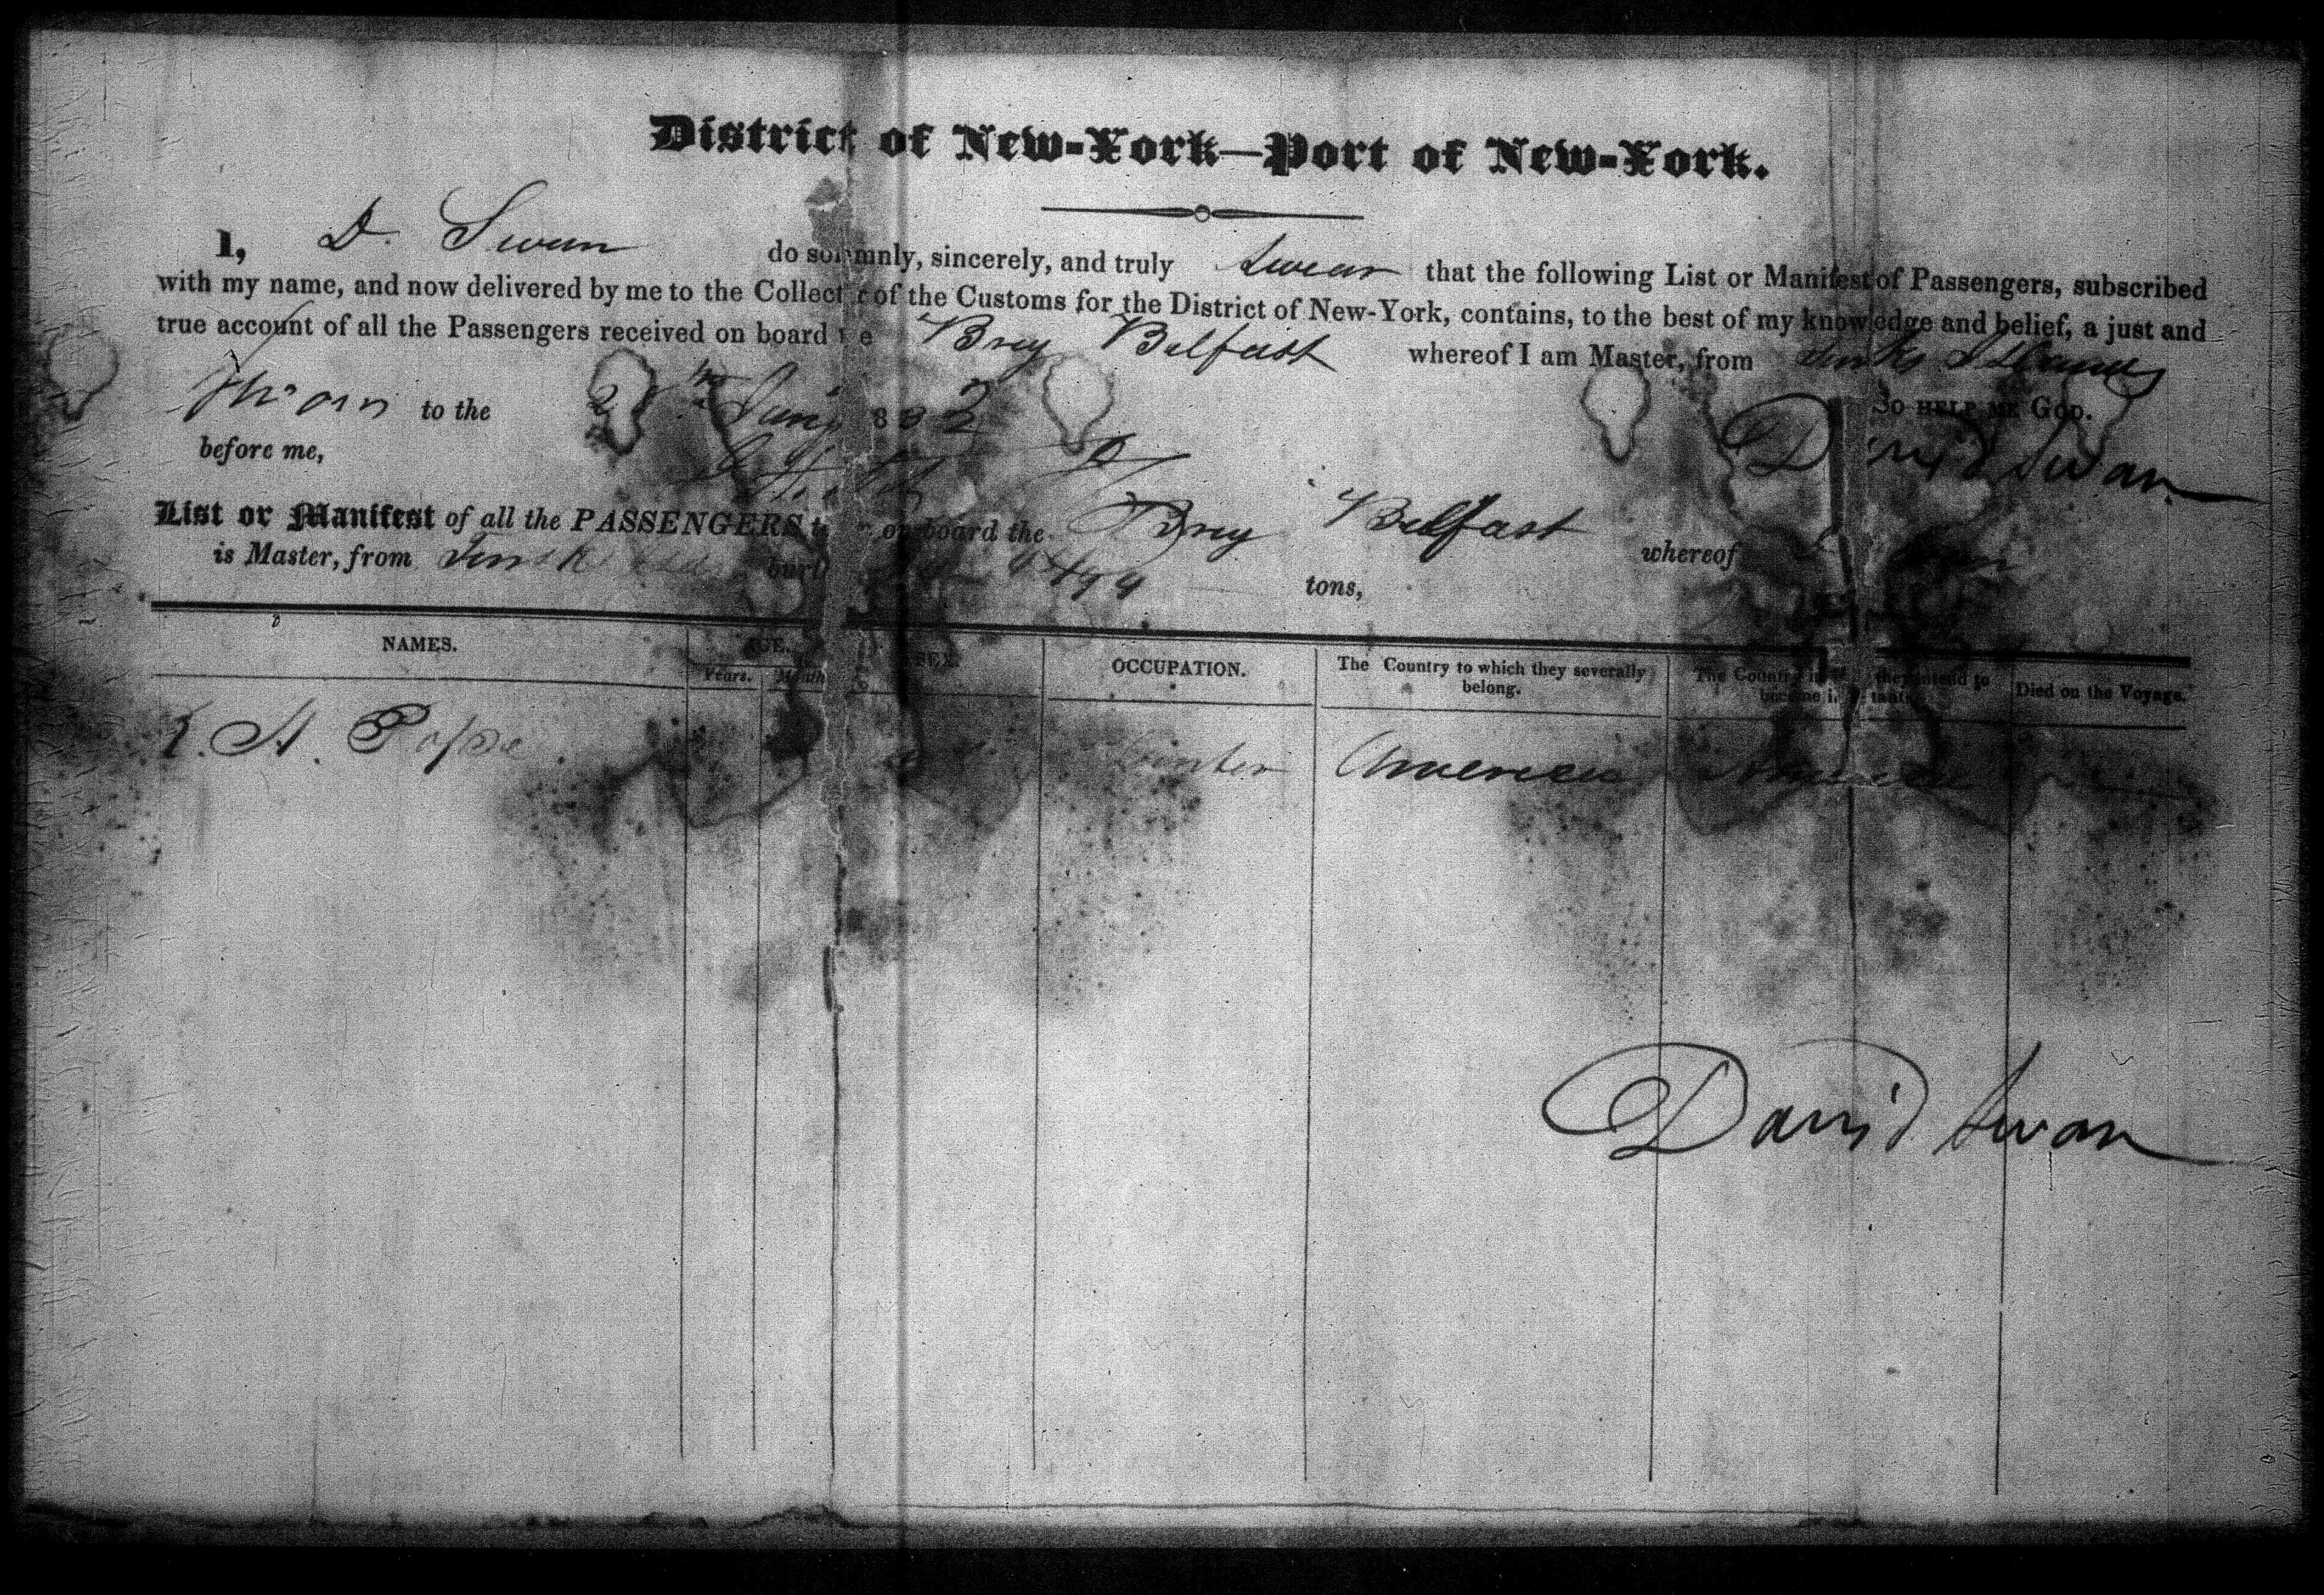 District of New-York—Port of New-York.
I, D. Swan do solemnly, sincerely, and truly Swear that the following List or Manifest of Passengers, subscribed
with my name, and now delivered by me to the Collect of the Customs for the District of New-York, contains, to the best of my knowledge and belief, a just and
true account of all the Passengers received on board Brig Belfast whereof I am Master, from Turks Islands
Sworn to the 1832 So HELP ME GOD.
before me, David Swan
List or Manifest of all the PASSENGERS on board the Brig Belfast whereof
is Master, from Turks tons,
NAMES. AGE. SEX. OCCUPATION. The Country to which they severally belong. The Country in they intend to become Died on the Voyage.
Years. Month
A. Pope America America
David Swan